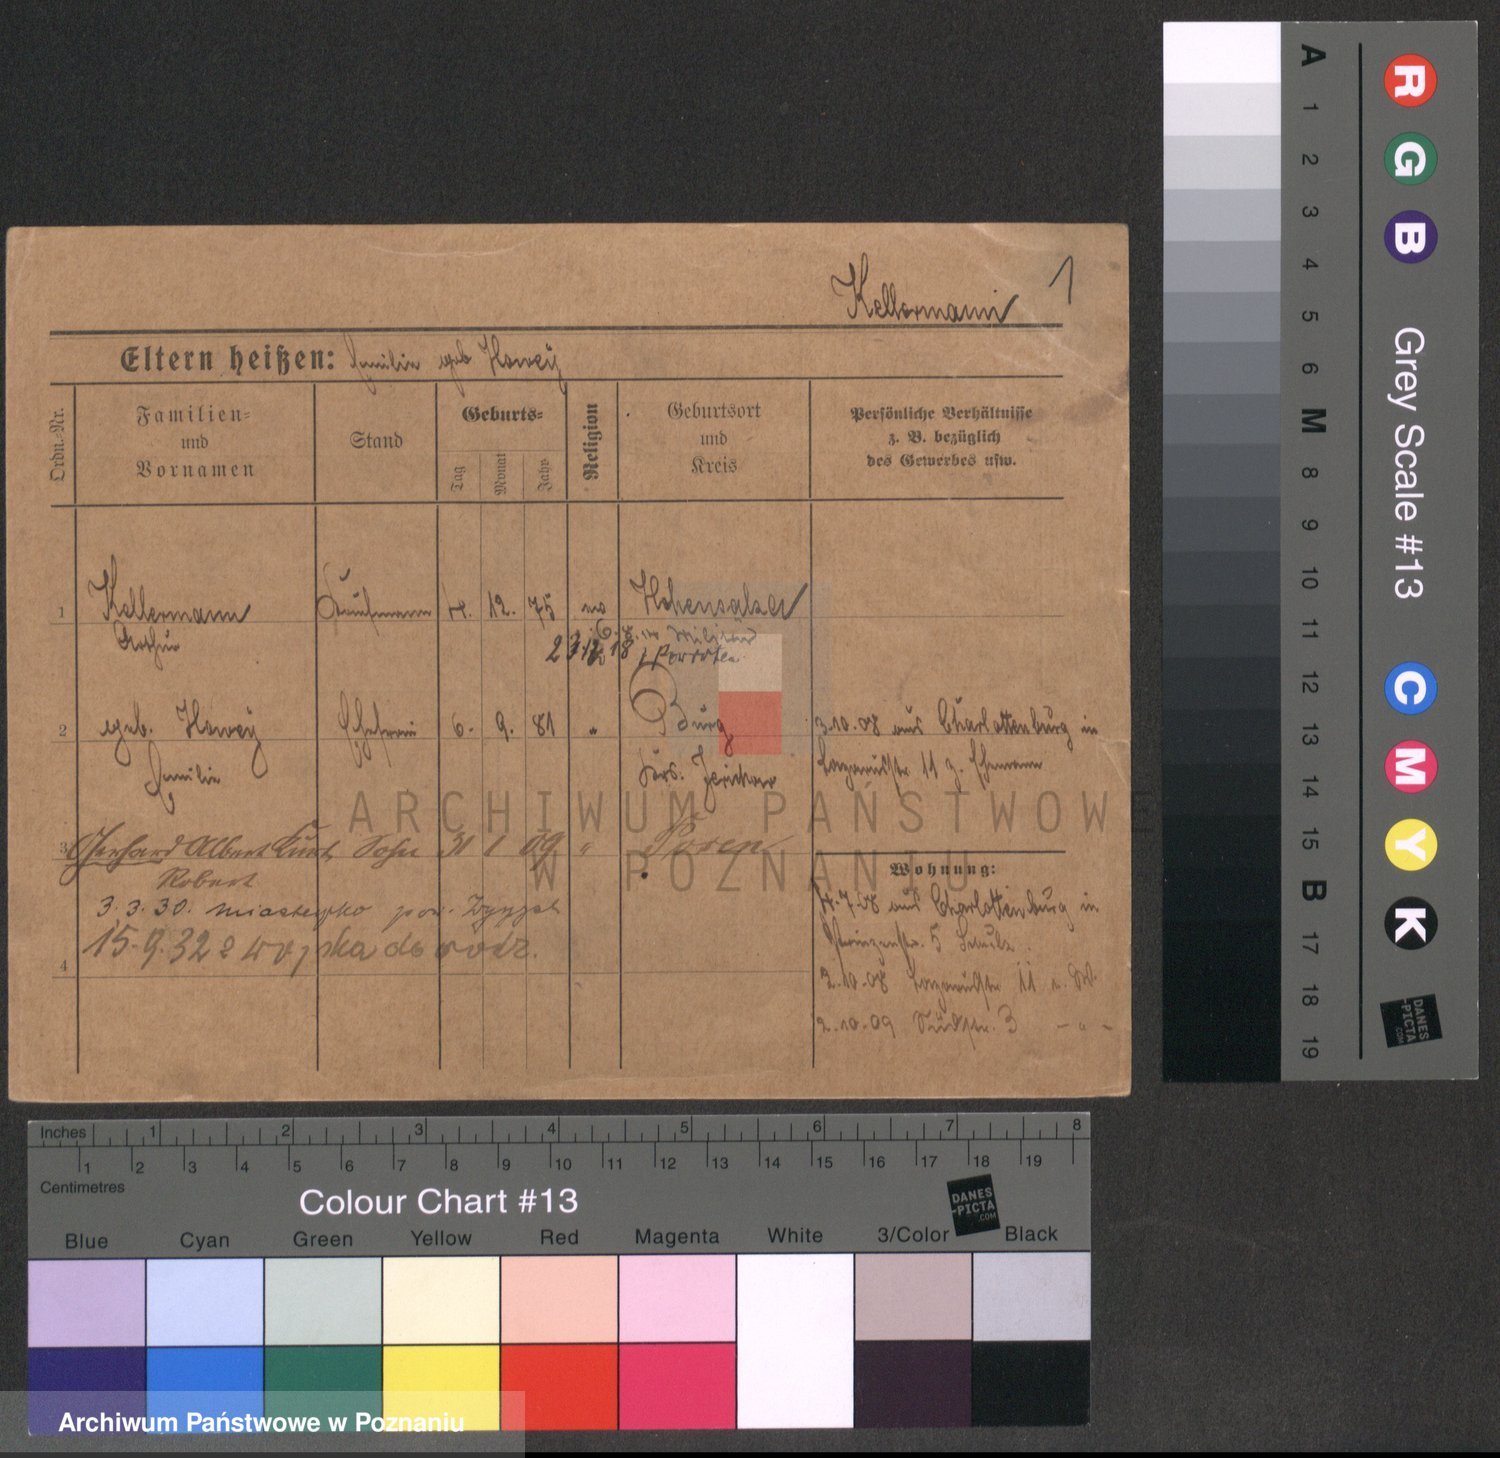 Kellermann 1
Eltern heißen: Emilie geb Howey
Ordn.-Nr.
Familien-
und
Vornamen
Stand
Geburts-
Tag
Monat
Jahr
Religion
Geburtsort
und
Kreis
Persönliche Verhältnisse
z. B. bezüglich
des Gewerbes usw.
1 Kellermann Kaufmann 4. 12. 75 Hohensalza
Arthur
6. 8. Militär
23.12.18
2 geb. Howey Ehefrau 6. 9. 81 " Burg
Emilie
Krs. Jerichow
3.10.08 aus Charlottenburg in
11 z. Ehemann
3 Gerhard Albert Kurt Sohn 31 1 09 " Posen
Robert
3.3.30. miasteczko pow.
15.9.32 z wojska do rodz.
4
Wohnung:
4.7.08 aus Charlottenburg in
Prinzenstr. 5 Schulz.
2.10.08 11
2.10.09 Südstr. 3 - " -
ARCHIWUM PAŃSTWOWE
W POZNANIU
A 1 2 3 4 5 6 M 8 9 10 11 12 13 14 15 B 17 18 19
R G B
Grey Scale #13
C M Y K
DANES
-PICTA
.COM
Inches 1 2 3 4 5 6 7 8
1 2 3 4 5 6 7 8 9 10 11 12 13 14 15 16 17 18 19
Centimetres
Colour Chart #13
DANES
-PICTA
.COM
Blue Cyan Green Yellow Red Magenta White 3/Color Black
Archiwum Państwowe w Poznaniu